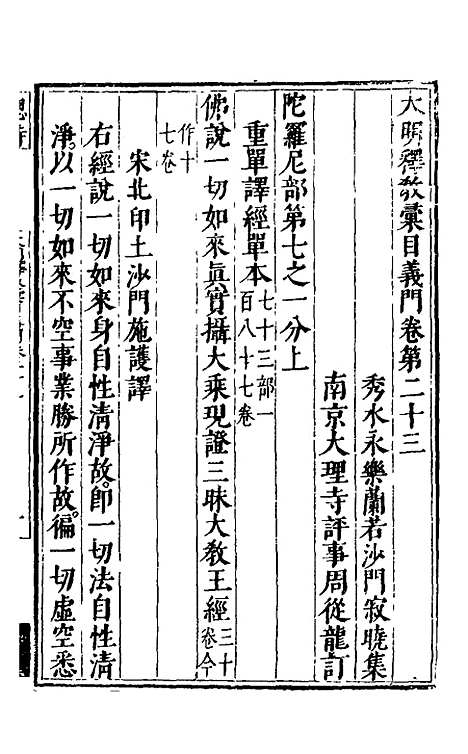 大明釋教彙目義門卷第二十三
秀水永樂蘭若沙門寂曉集
南京大理寺評事周從龍訂
陀羅尼部第七之一分上
重單譯經單本七十三部一百八十七卷
佛說一切如來眞實攝大乘現證三昧大教王經三十卷今作十七卷
宋北印土沙門施護譯
右經說一切如來身自性清淨故。卽一切法自性清
淨。以一切如來不空事業勝所作故。徧一切虛空悉